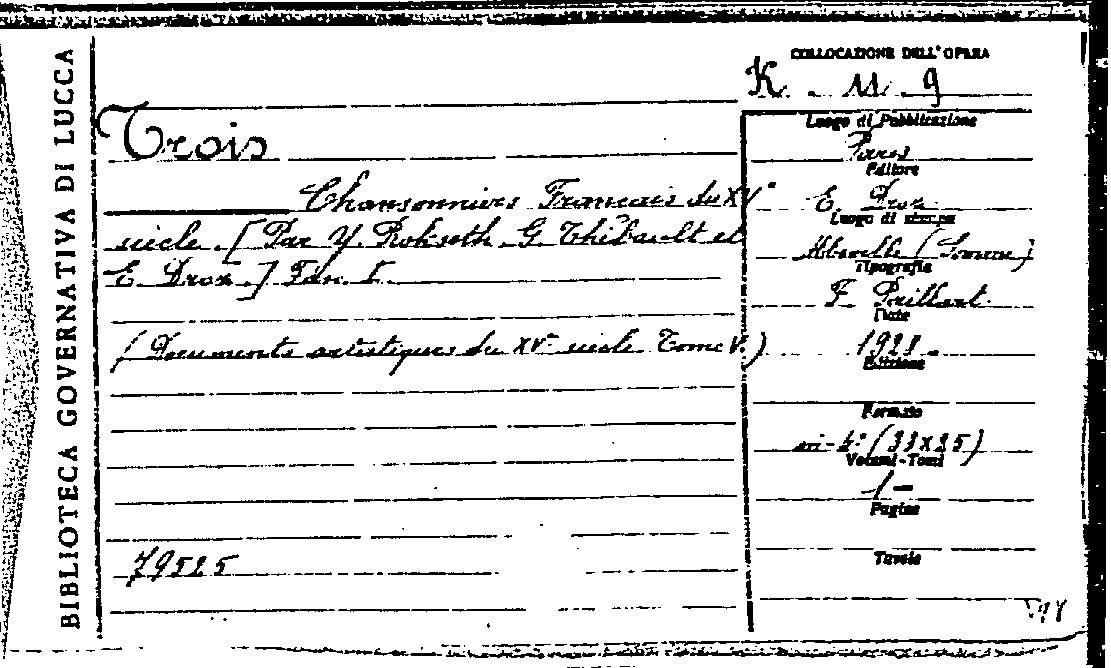 BIBLIOTECA GOVERNATIVA DI LUCCA
COLLOCAZIONE DELL'OPERA
K. 11. 9
Trois
Chansonniers Francais du XV°
siècle. [Par Y. Rokseth, G. Thibault et
E. Droz.] Fas. I.
(Documents artistiques du XVe siècle Tome V.)
79525
Luogo di Pubblicazione
Paris
Editore
E. Droz
Luogo di stampa
Abbeville (Somme)
Tipografia
F. Paillart
Date
1928.
Edizione
Formato
in-4° (33X25)
Volumi-Tomi
1 -
Pagine
Tavole